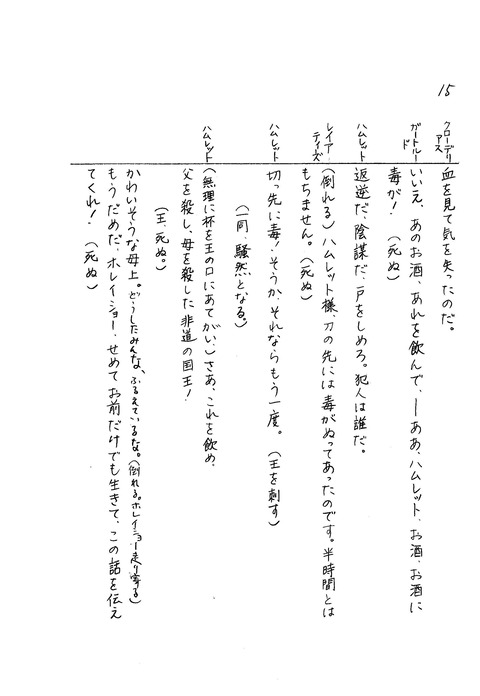 15
クローディアス 血を見て気を失ったのだ。
ガートルード いいえ、あのお酒、あれを飲んで、—ああ、ハムレット、お酒、お酒に
毒が！ （死ぬ）
ハムレット 返逆だ、陰謀だ、戸をしめろ。犯人は誰だ。
レイアティーズ （倒れる）ハムレット様、刀の先には毒がぬってあったのです。半時間とは
もちません。（死ぬ）
ハムレット 切っ先に毒！そうか、それならもう一度。 （王を刺す）
（一同、騒然となる。）
ハムレット （無理に杯を王の口にあてがい、）さあ、これを飲め、
父を殺し、母を殺した非道の国王！
（王、死ぬ。）
かわいそうな母上。どうしたみんな、ふるえているな。（倒れる。ホレイショー走り寄る）
もうだめだ、ホレイショー、せめてお前だけでも生きて、この話を伝え
てくれ！ （死ぬ）